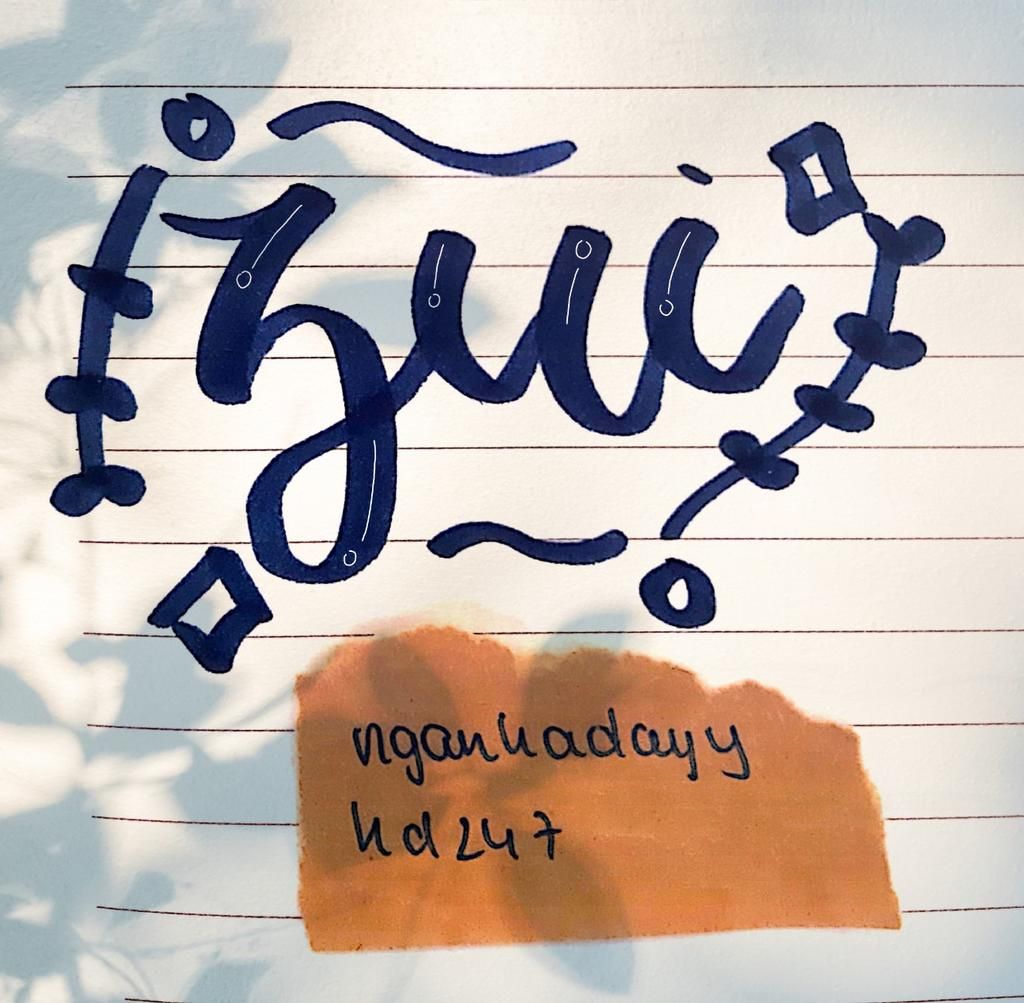 zui
nganhadayy
hd247